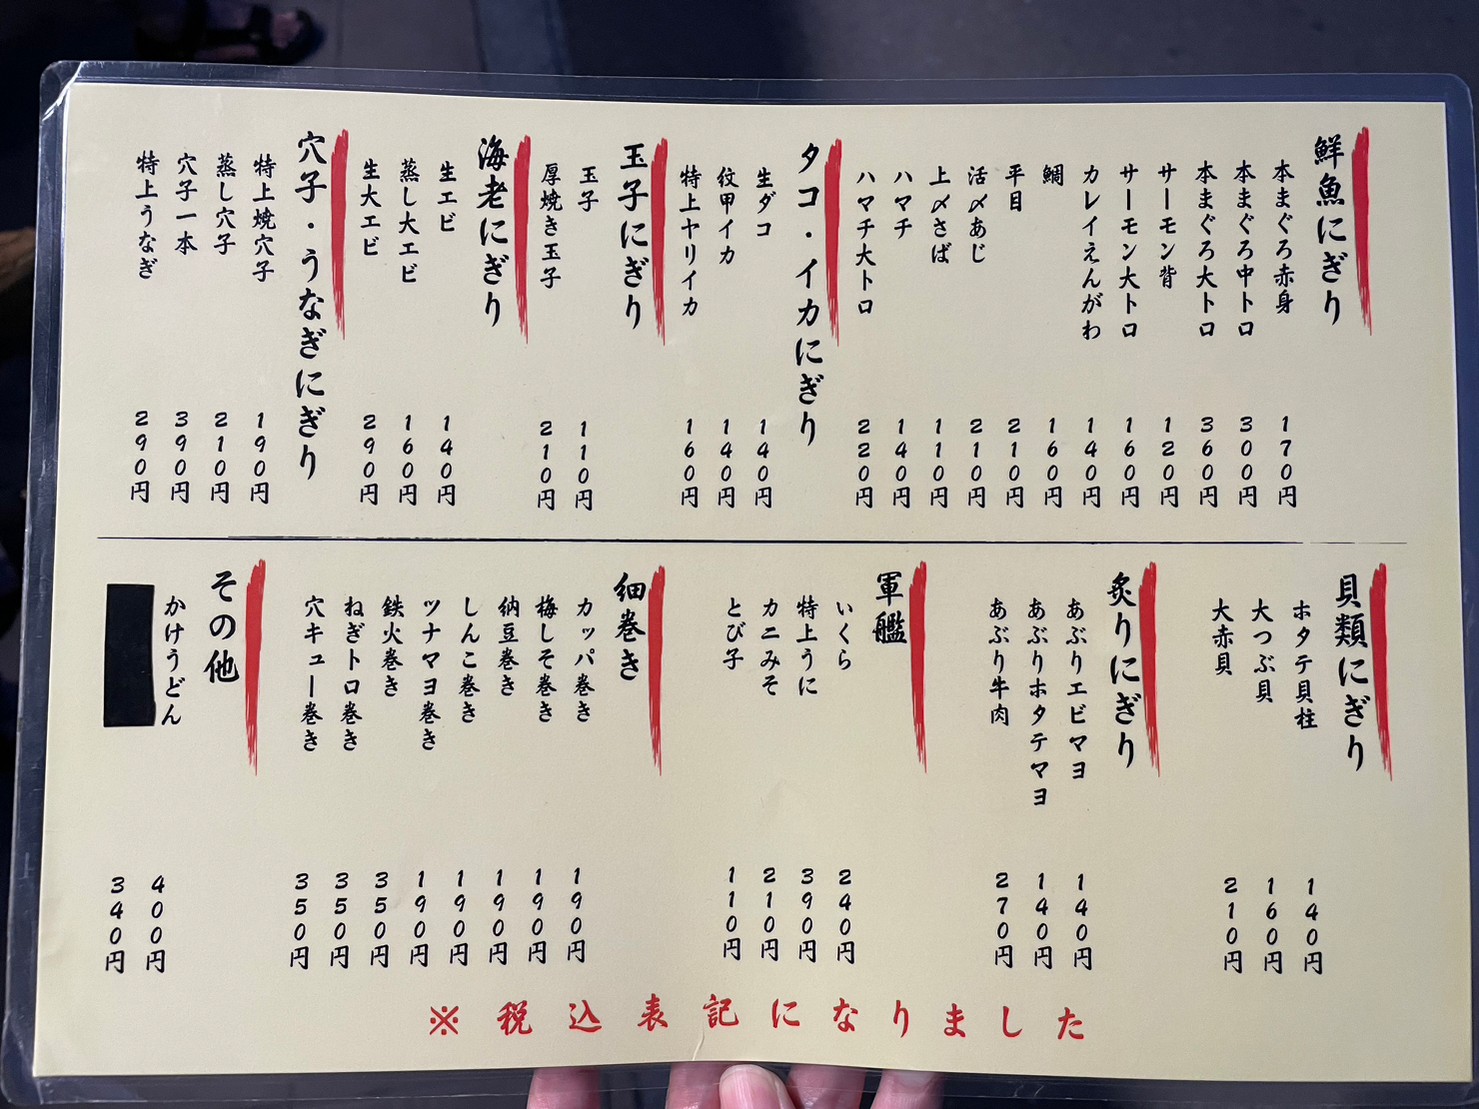 鮮魚にぎり
本まぐろ赤身 170円
本まぐろ中トロ 300円
本まぐろ大トロ 360円
サーモン背 120円
サーモン大トロ 160円
カレイえんがわ 140円
鯛 160円
平目 210円
活〆あじ 210円
上〆さば 110円
ハマチ 140円
ハマチ大トロ 220円
タコ・イカにぎり
生ダコ 140円
紋甲イカ 140円
特上ヤリイカ 160円
玉子にぎり
玉子 110円
厚焼き玉子 210円
海老にぎり
生エビ 140円
蒸し大エビ 160円
生大エビ 290円
穴子・うなぎにぎり
特上焼穴子 190円
蒸し穴子 210円
穴子一本 390円
特上うなぎ 290円
貝類にぎり
ホタテ貝柱 140円
大つぶ貝 160円
大赤貝 210円
炙りにぎり
あぶりエビマヨ 140円
あぶりホタテマヨ 140円
あぶり牛肉 270円
軍艦
いくら 240円
特上うに 390円
カニみそ 210円
とび子 110円
細巻き
カッパ巻き 190円
梅しそ巻き 190円
納豆巻き 190円
しんこ巻き 190円
ツナマヨ巻き 190円
鉄火巻き 350円
ねぎトロ巻き 350円
穴キュー巻き 350円
その他
かけうどん 400円
340円
※税込表記になりました